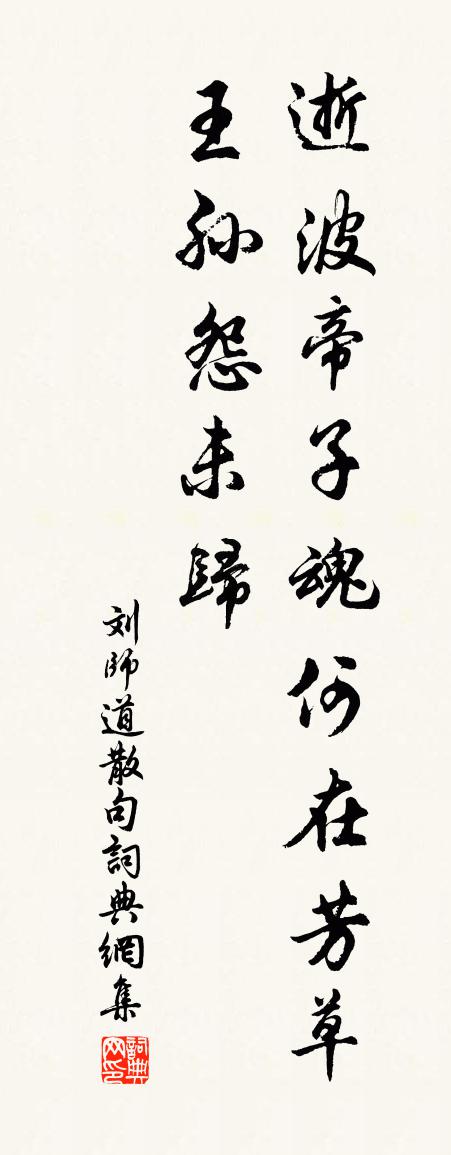 逝波帝子魂何在芳草
王孙怨未歸
刘師道散句詞典網集
詞典网印